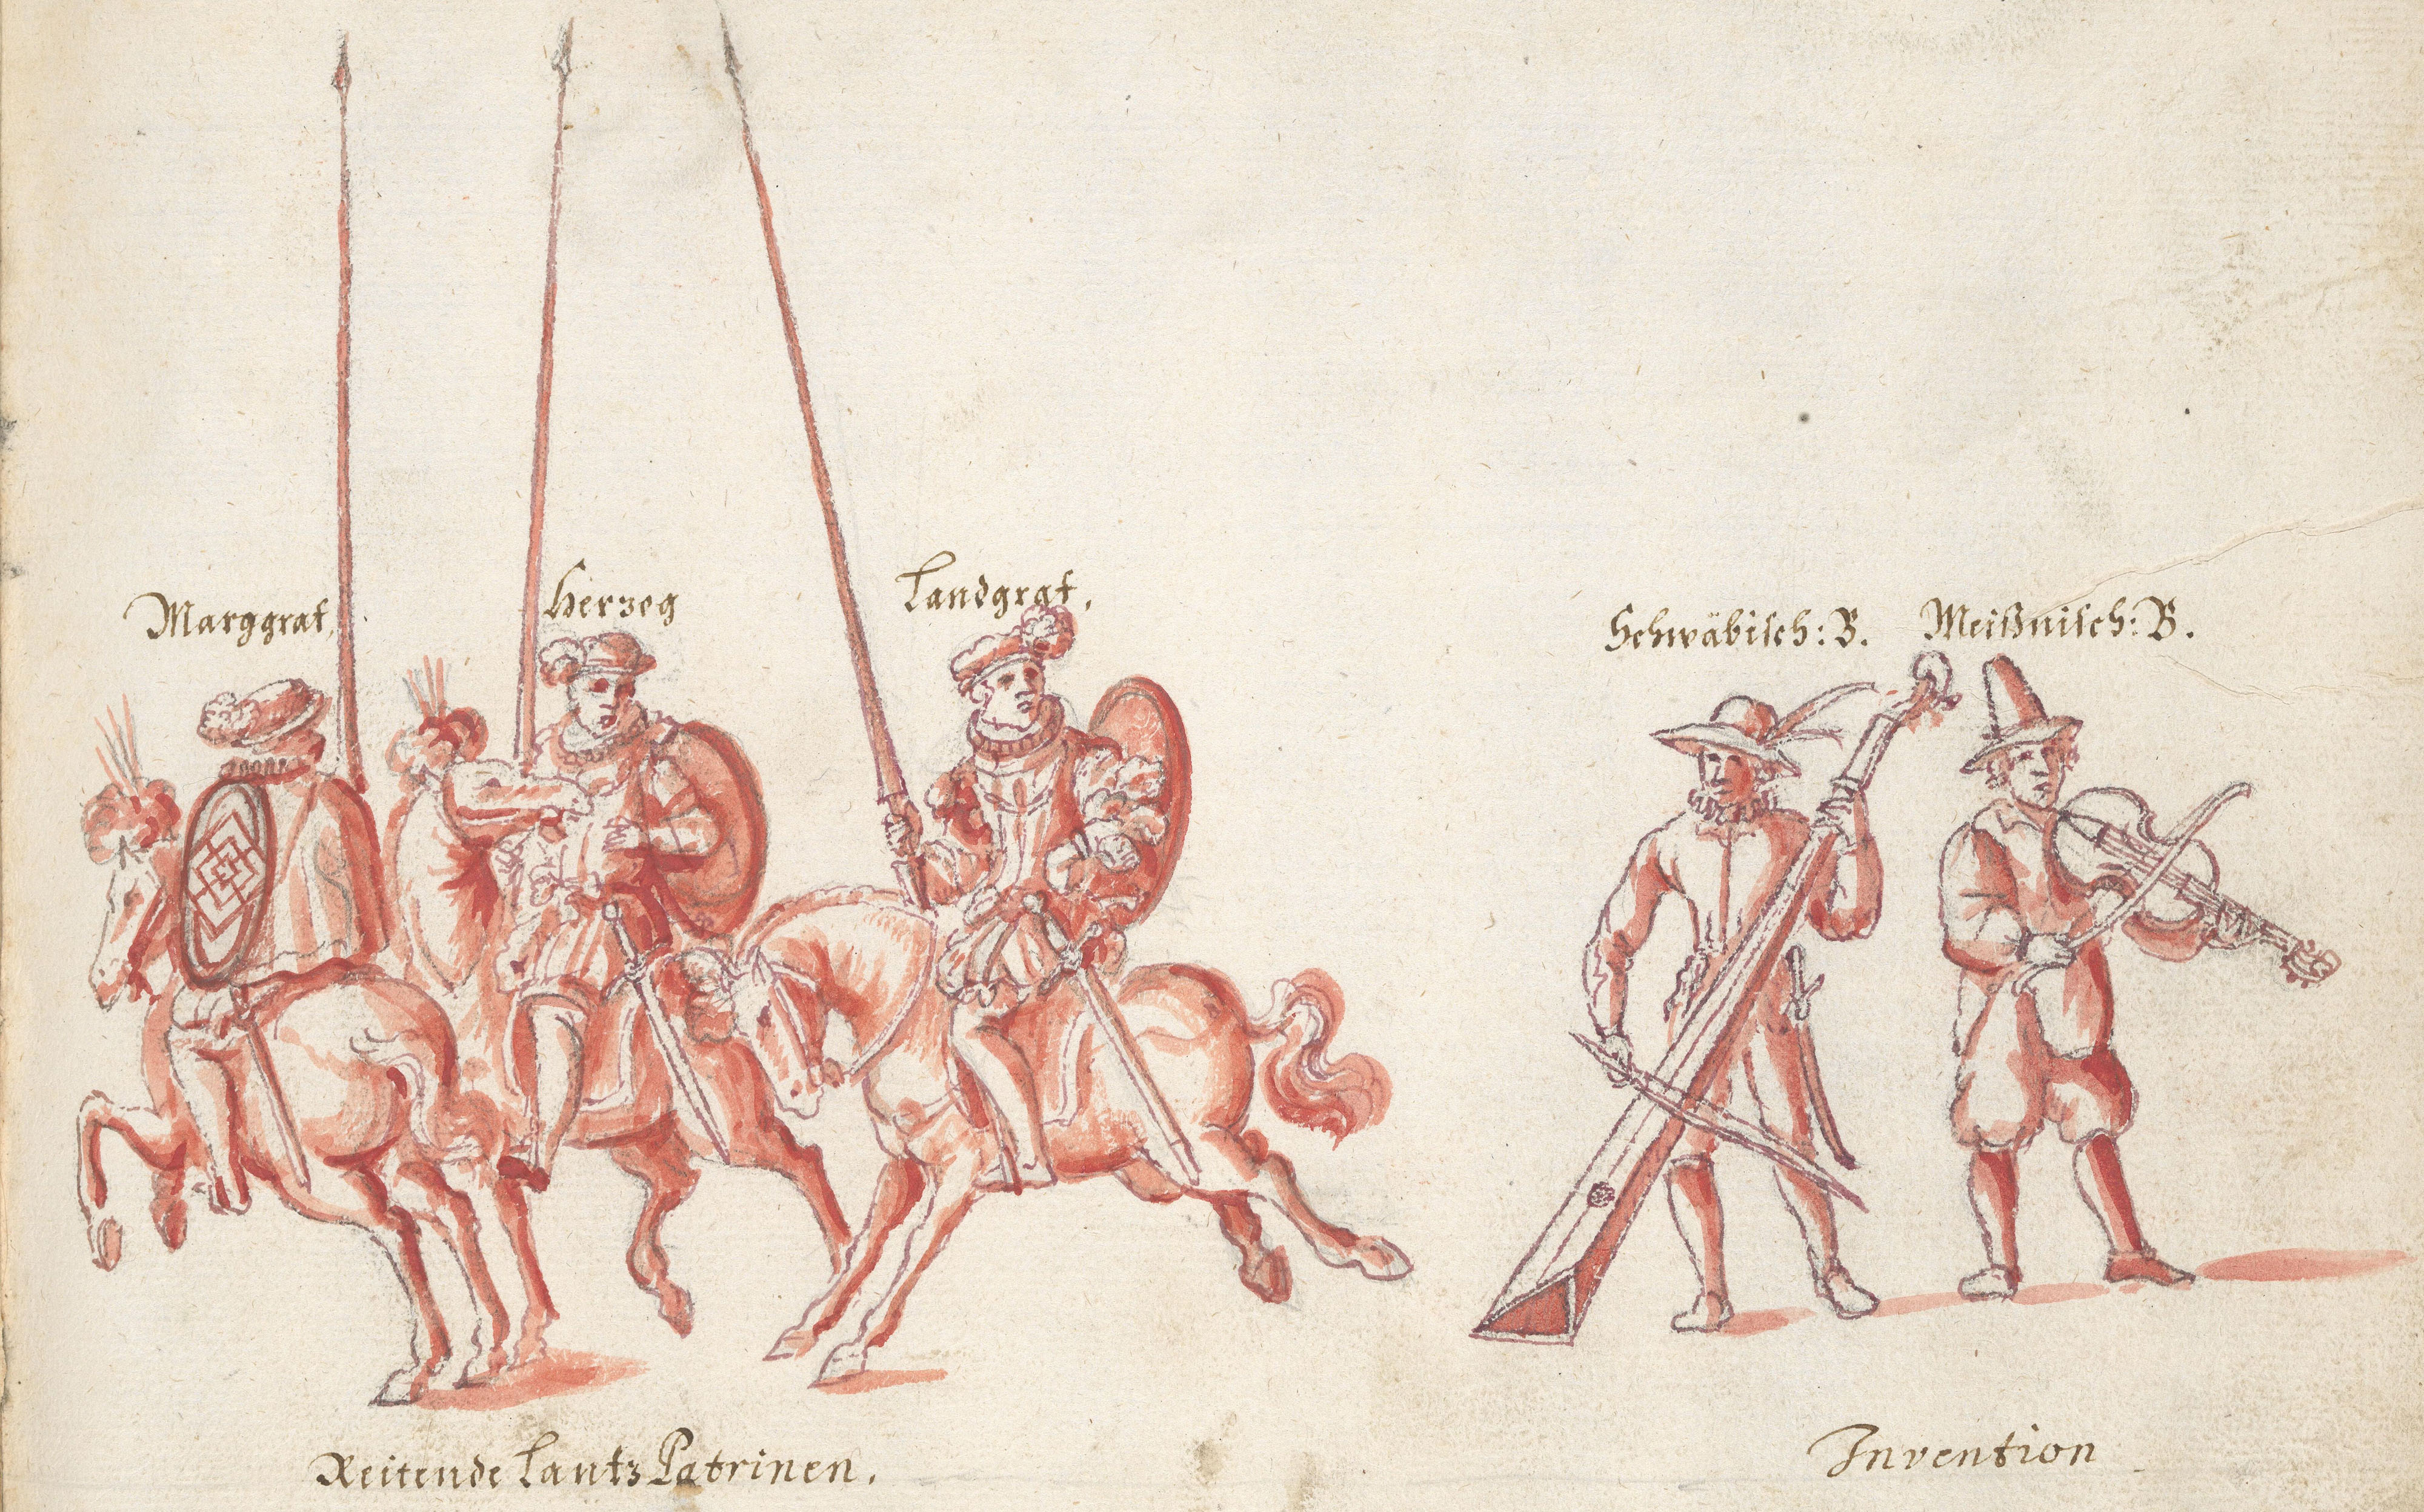 Marggraf,
Herzog
Landgraf,
Schwäbisch: B.
Meißnisch: B.
Reitende Lantz Patrinen.
Invention